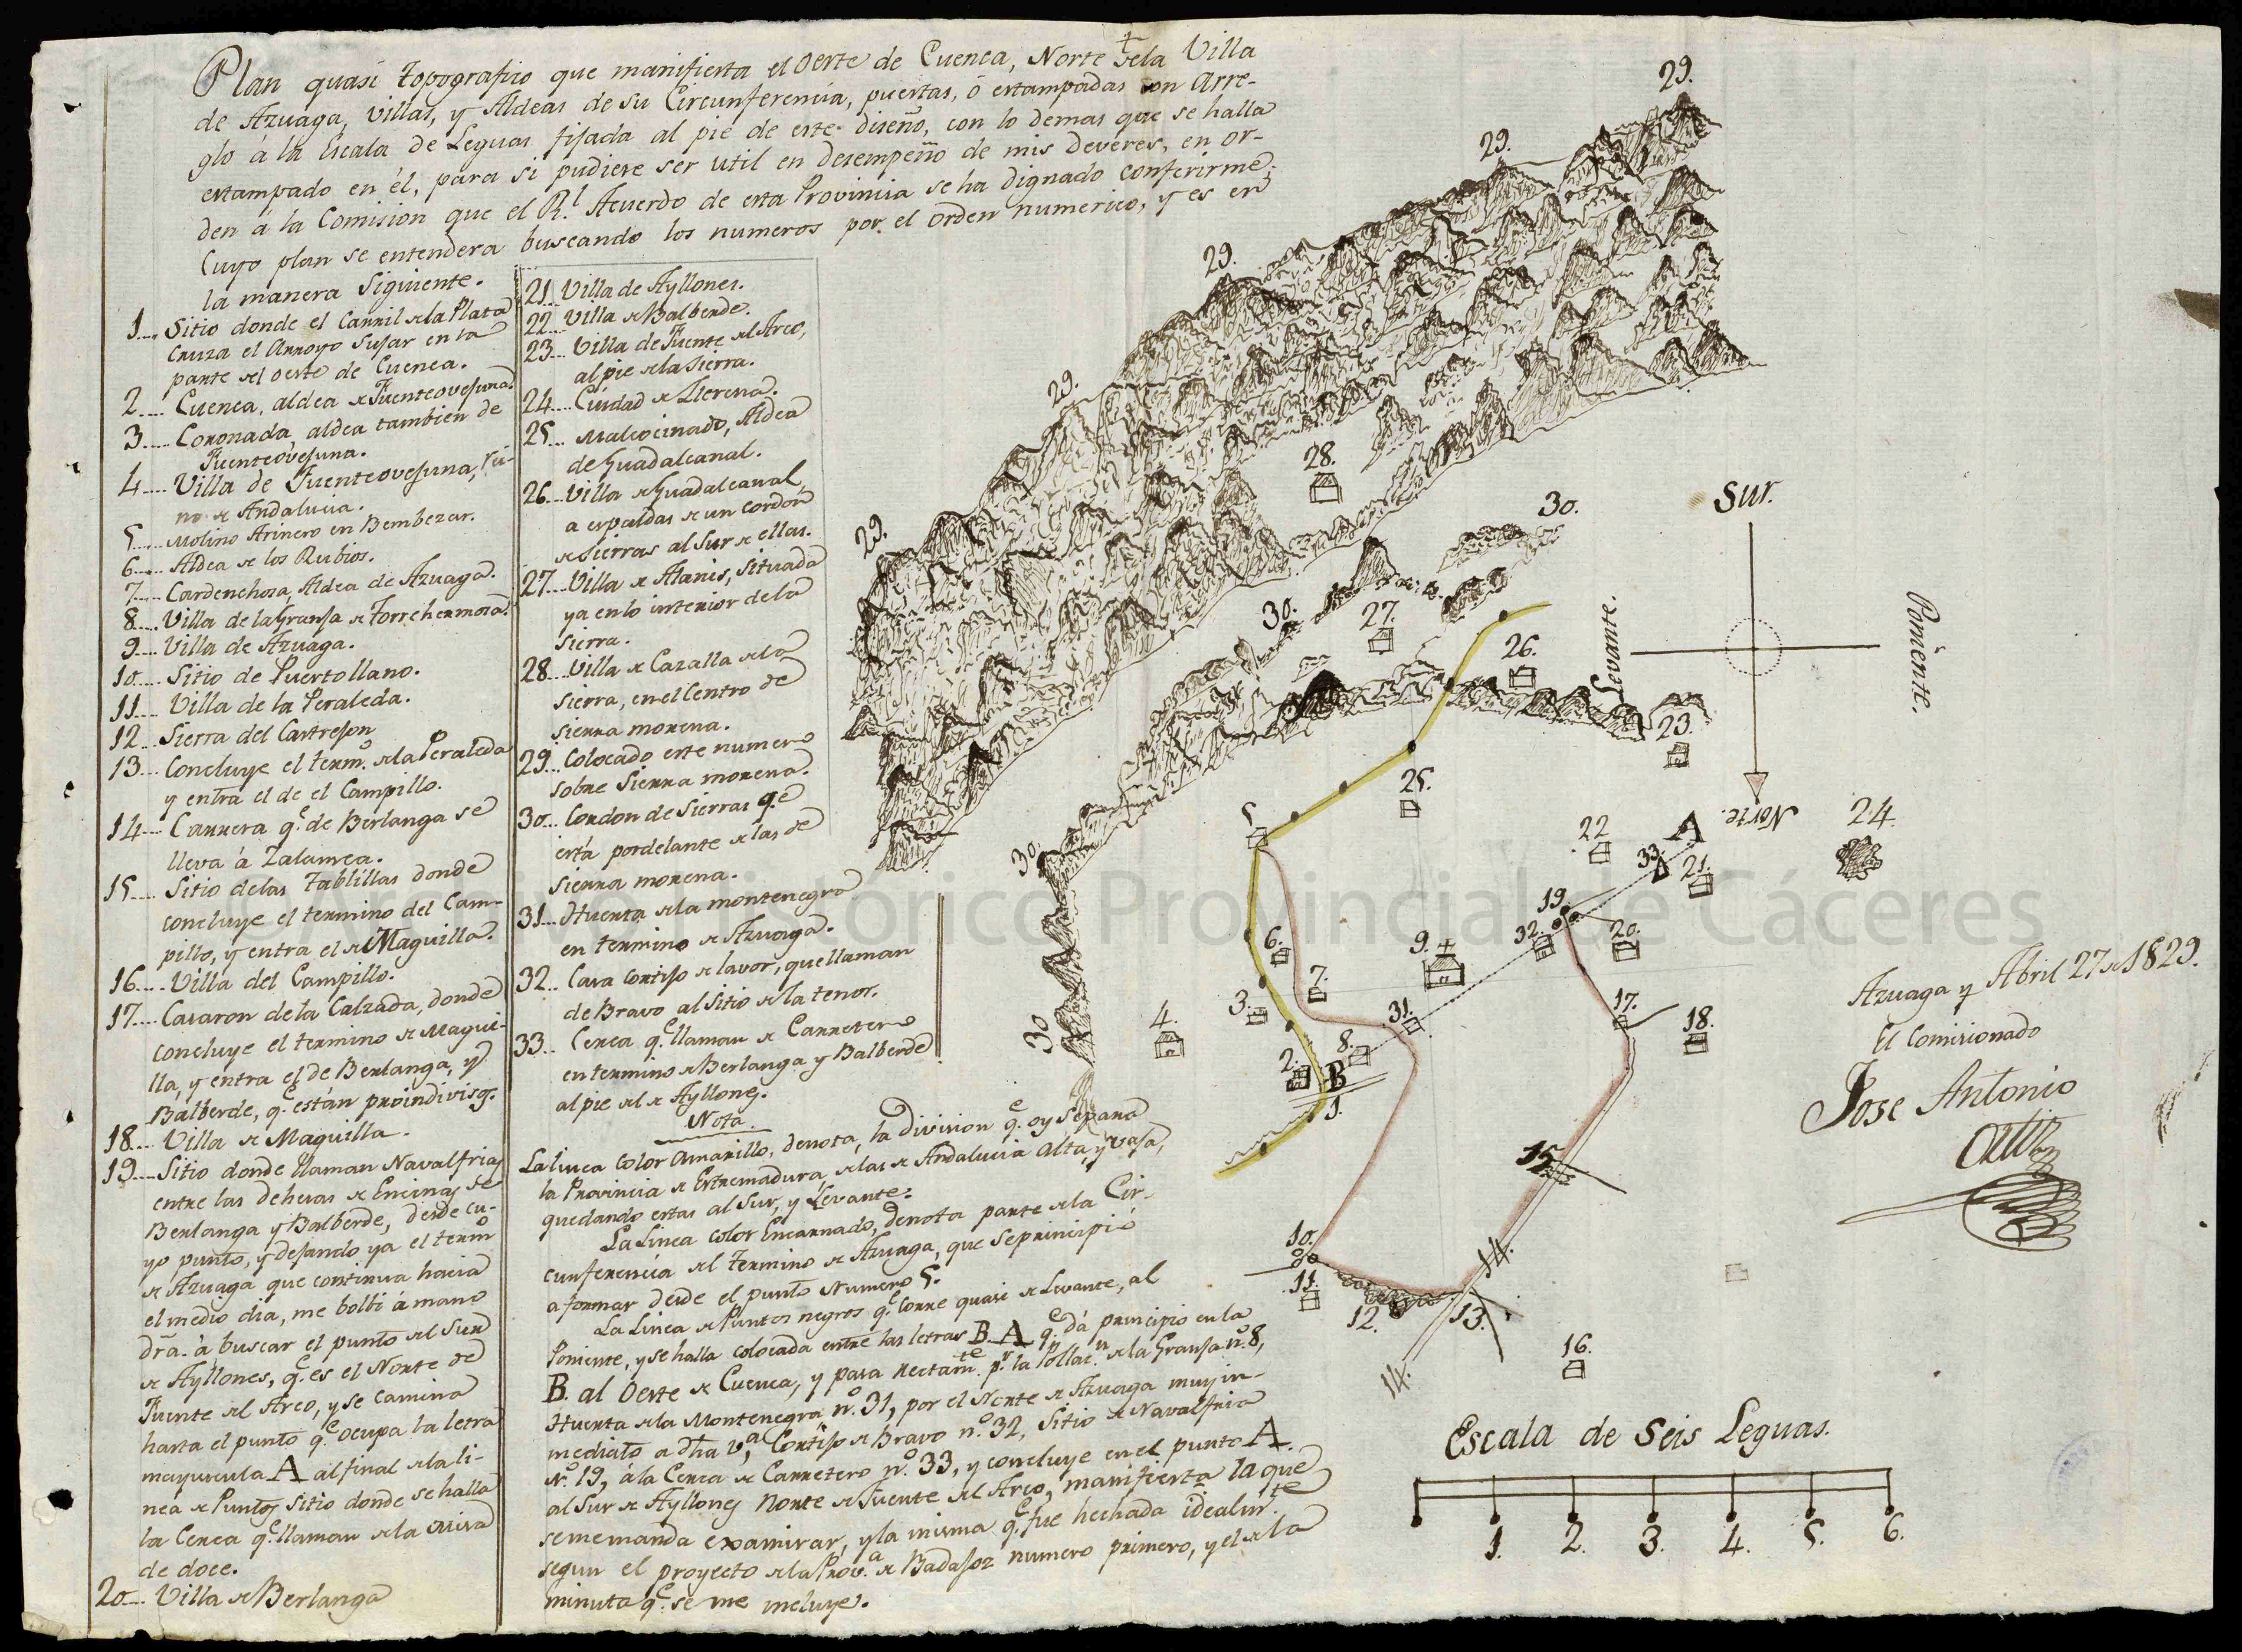 Plan quasi topografico que manifiesta el oeste de Cuenca, Norte dela Villa
de Azuaga, Villas, y Aldeas de su Circunferencia, puestas, ó estampadas con Arre-
glo a la Escala de Leguas fijada al pie de este diseño, con lo demas que se halla
estampado en él, para si pudiere ser util en desempeño de mis deveres, en or-
den á la Comision que el Rl. Acuerdo de esta Provincia se ha dignado conferirme;
Cuyo plan se entendera buscando los numeros por el orden numerico, y es en
la manera siguiente.
1.... Sitio donde el Carril de la Plata
cruza el Arroyo Sujar en la
parte del oeste de Cuenca.
2.... Cuenca, aldea de Fuenteovejuna.
3.... Coronada, aldea tambien de
Fuenteovejuna.
4.... Villa de Fuenteovejuna, rei-
no de Andalucia.
5.... Molino Arinero en Bembezar.
6.... Aldea de los Rubios.
7.... Cardenchosa, Aldea de Azuaga.
8.... Villa de la Granja de Torrehermosa.
9.... Villa de Azuaga.
10.... Sitio de Puertollano.
11.... Villa de la Peraleda.
12.. Sierra del Castrejon
13... Concluye el termo. de la Peraleda
y entra el de el Campillo.
14... Carrera qe. de Berlanga se
lleva á Zalamea.
15.... Sitio delas Tablillas donde
concluye el termino del Cam-
pillo, y entra el de Maguilla.
16.... Villa del Campillo.
17.... Casaron de la Calzada, donde
concluye el termino de Magui-
lla, y entra el de Berlanga, y
Balberde, qe. están proindivisos.
18.... Villa de Maguilla.
19.... Sitio donde llaman Navalfrias
entre las dehesas de Encinas de
Berlanga y Balberde, desde cu-
yo punto, y dejando ya el termo
de Azuaga que continua hacia
el medio dia, me bolbi á mano
dra. á buscar el punto del Sur
de Ayllones, qe. es el Norte de
Fuente del Arco, y se camina
hasta el punto qe. ocupa la letra
mayuscula A al final de la li-
nea de Puntos sitio donde se halla
la Cerca qe. llaman de la Misa
de doce.
20.... Villa de Berlanga
21.. Villa de Ayllones.
22... Villa de Balberde.
23... Villa de Fuente del Arco,
al pie de la Sierra.
24.... Ciudad de Llerena.
25... Malcocinado, Aldea
de Guadalcanal.
26... Villa de Guadalcanal,
a espaldas de un cordón
de Sierras al Sur de ellas.
27.... Villa de Alanis, situada
ya en lo interior de la
Sierra.
28... Villa de Cazalla de la
Sierra, en el Centro de
Sierra morena.
29... Colocado este numero
sobre Sierra morena.
30... Cordon de Sierras qe.
está por delante de las de
Sierra morena.
31... Huerta de la montenegra
en termino de Azuaga.
32... Casa Cortijo de lavor, que llaman
de Bravo al sitio de la tenor.
33... Cerca qe. llaman de Carretero
en termino de Berlanga y Balberde
al pie del de Ayllones.
Nota.
La linea color amarillo, denota, la division qe. oy separa
la Provincia de Extremadura, de las de Andalucia alta, y vaja,
quedando estas al Sur, y Levante.
La Linea color Encarnado, denota parte de la Cir-
cunferencia del termino de Azuaga, que se principió
a formar desde el punto Numero 5.
La Linea de Puntos negros qe. corre quasi de Levante, al
Poniente, y se halla colocada entre las letras B. A. qe. dá principio en la
B. al Oeste de Cuenca, y pasa rectamte. pr. la Pollacn. de la Granja no. 8,
Huerta de la Montenegra no. 31, por el Norte de Azuaga muy in-
mediato a dha va., Cortijo de Bravo no. 32, sitio de Navalfria
No. 19, á la Cerca de Carretero no. 33, y concluye en el punto A.
al Sur de Ayllones Norte de Fuente del Arco, manifiesta la que
se me manda examinar, y la misma qe. fue hechada idealmte.
segun el proyecto de la Prova. de Badajoz numero primero, y el de la
minuta qe. se me incluye.
29.
29.
29.
29.
29.
28.
30.
30.
27.
26.
Sur.
Levante.
Poniente.
Norte.
23.
25.
5
24.
22
A
33.
21.
30.
19.
32.
20.
9.
6.
7.
3.
31.
17.
18.
30
4.
8.
2.
B
1.
15.
10.
11.
12.
13.
14.
14.
16.
Azuaga y Abril 27 de 1829.
El Comisionado
Jose Antonio
Ortiz
Escala de Seis Leguas.
1. 2. 3. 4. 5. 6.
Archivo Histórico Provincial de Cáceres